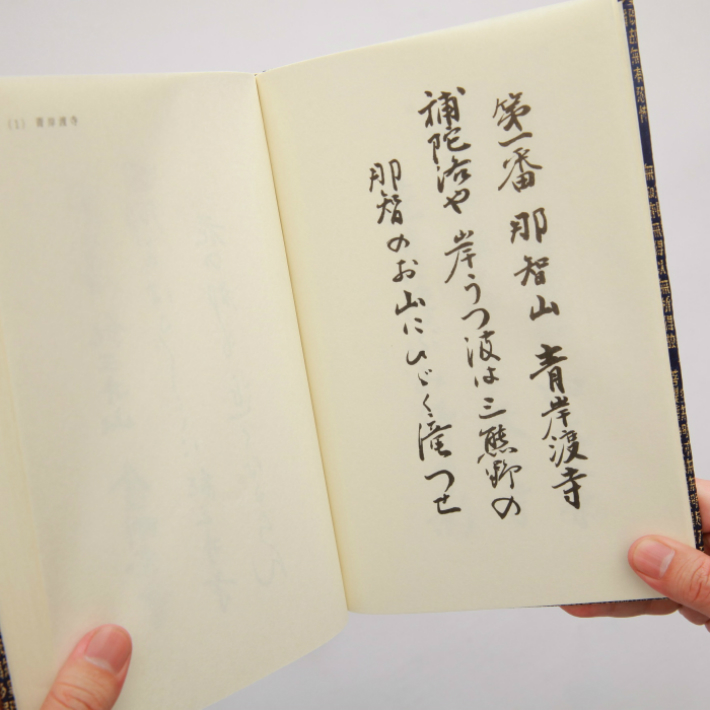 第一番 那智山 青岸渡寺
補陀洛や 岸うつ波は三熊野の
那智のお山にひゞく滝つせ
(1) 青岸渡寺